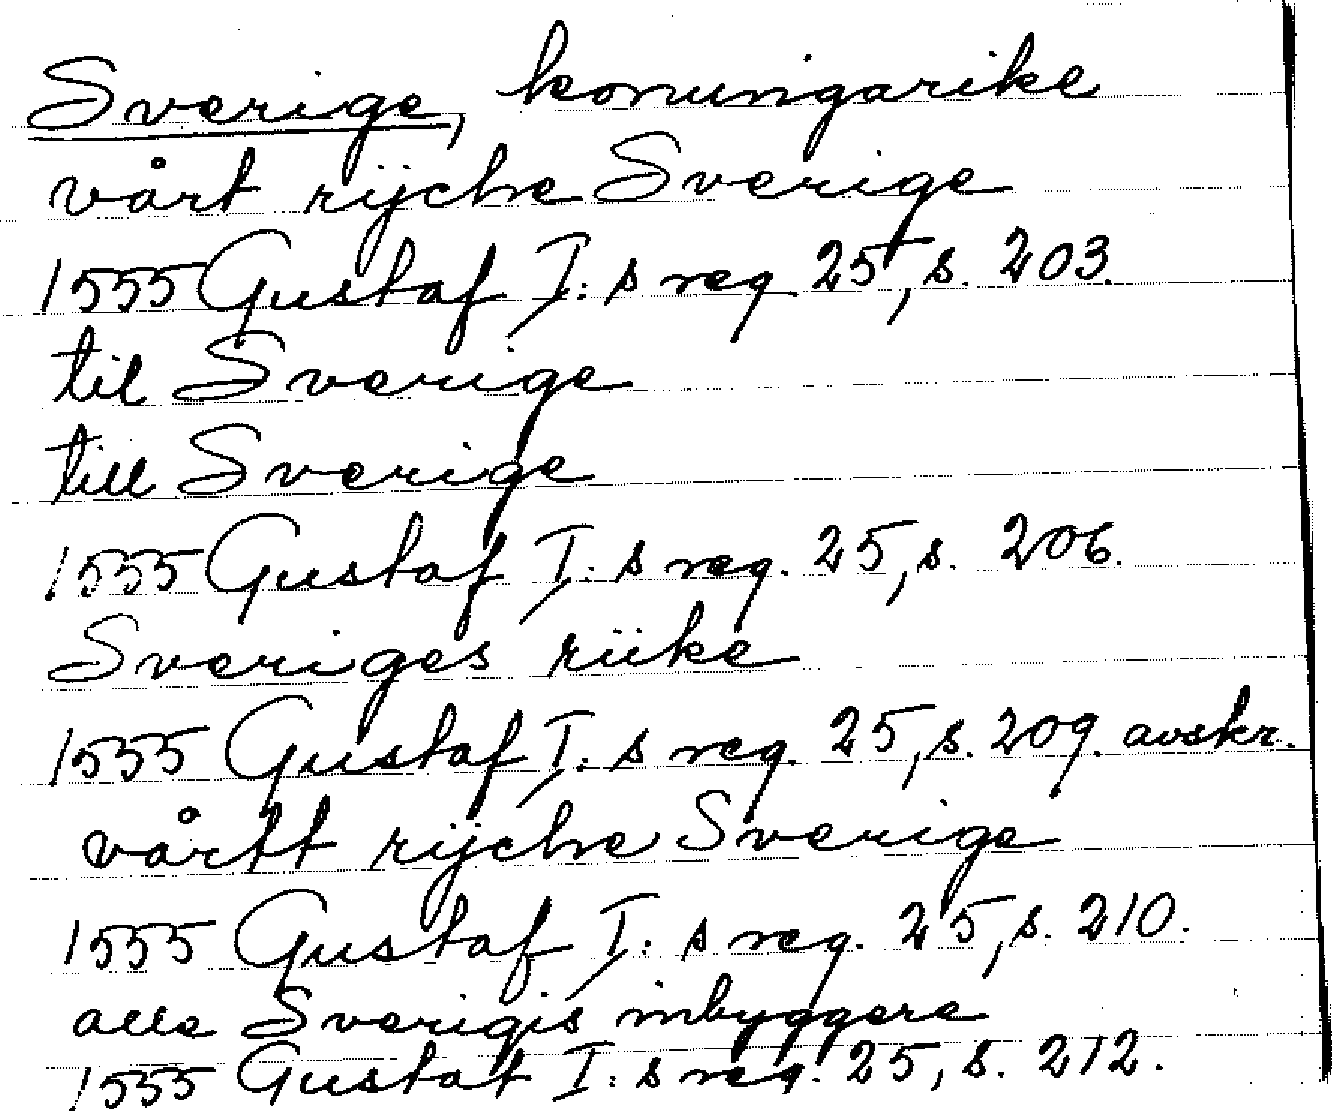 Sverige, konungarike
vårt rijche Sverige
1555 Gustaf I: s reg. 25, s. 203.
til Sverige
till Sverige
1555 Gustaf I: s reg. 25, s. 206.
Sveriges riike
1555 Gustaf I: s reg. 25, s. 209. avskr.
vårtt rijche Sverige
1555 Gustaf I: s reg. 25, s. 210.
alla Sverigis inbyggere
1555 Gustaf I: s reg. 25, s. 212.